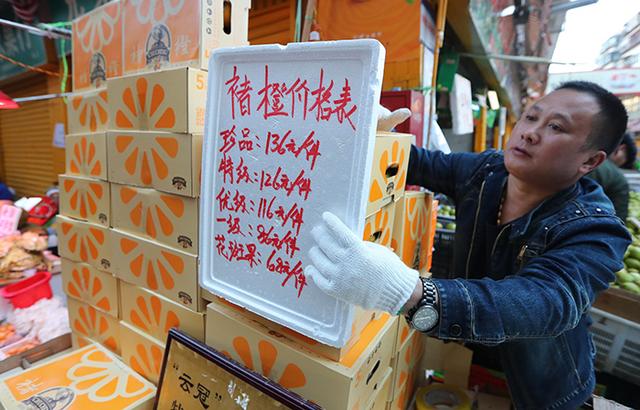 褚橙价格表
珍品：136元/件
特级：126元/件
优级：116元/件
一级：86元/件
花斑果：68元/件
"云冠"